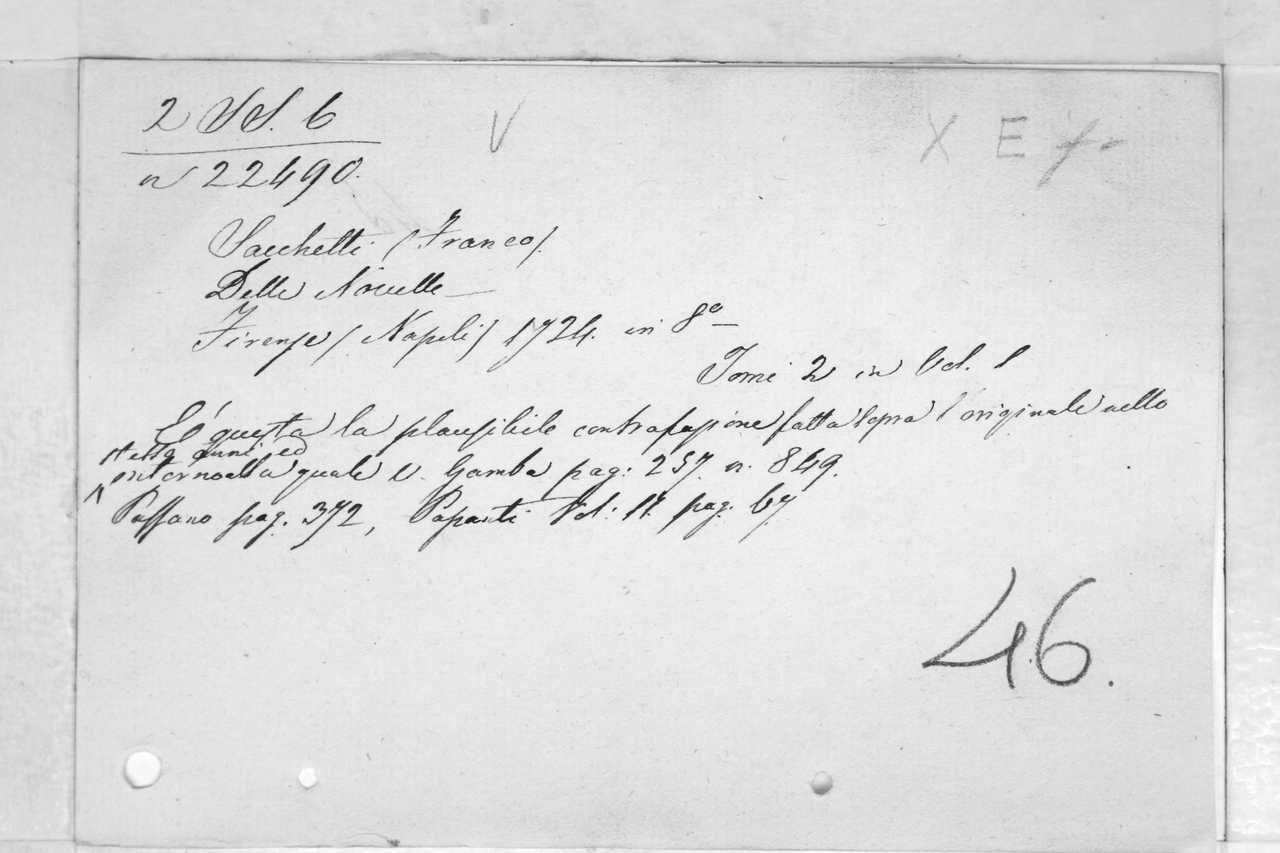 2 SS. 6
V
X E
n 22490.
Sacchetti (Franco).
Delle Novelle —
Firenze (Napoli) 1724. in 8º
Tomi 2 in Vol. 1
E' questa la plausibile contrafazione fatta sopra l'originale nello
stesso anno ed
intorno alla quale v. Gamba pag: 257. n. 849.
Passano pag. 372, Papanti Vol: II. pag. 67
46.